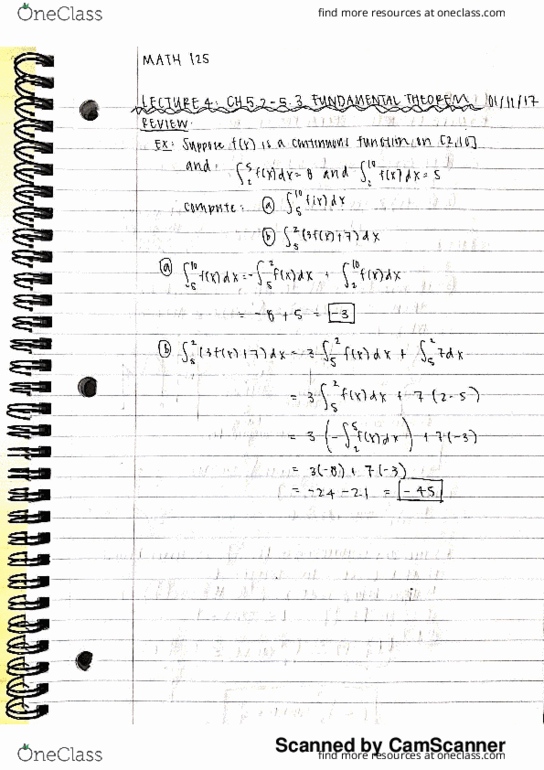 OneClass
find more resources at oneclass.com
MATH 125
LECTURE 4: CH 5.2-5.3 FUNDAMENTAL THEOREM 01/11/17
REVIEW:
EX: Suppose f(x) is a continuous function on [2,10]
and: ∫₂⁵ f(x)dx = 8 and ∫₂¹⁰ f(x)dx = 5
compute: (a) ∫₅¹⁰ f(x)dx
(b) ∫₅² (3f(x)+7)dx
(a) ∫₅¹⁰ f(x)dx = -∫₅² f(x)dx + ∫₂¹⁰ f(x)dx
= -8 + 5 = -3
(b) ∫₅² (3f(x)+7)dx = 3∫₅² f(x)dx + ∫₅² 7dx
= 3∫₅² f(x)dx + 7(2-5)
= 3(-∫₂⁵ f(x)dx) + 7(-3)
= 3(-8) + 7(-3)
= -24 - 21 = -45
Scanned by CamScanner
OneClass
find more resources at oneclass.com